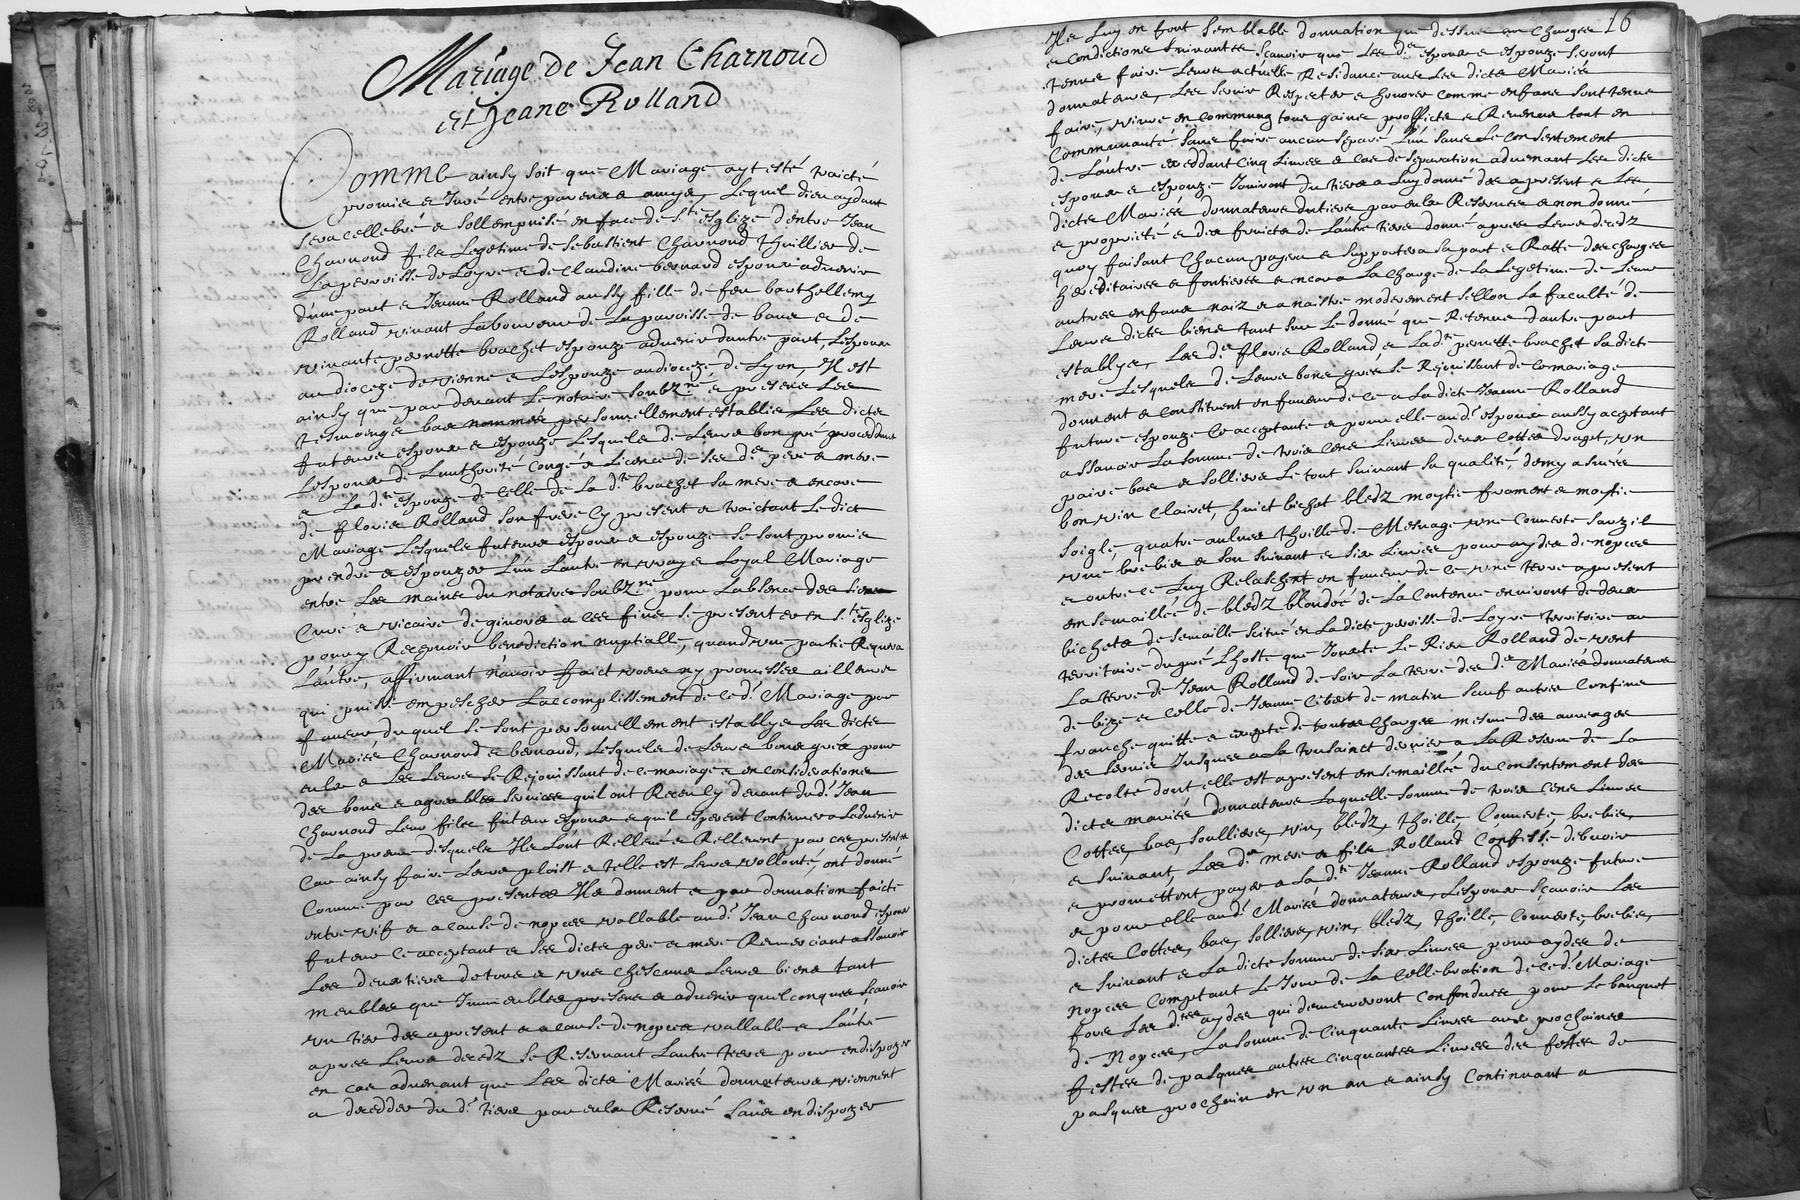 Mariage de Jean Charnoud
et Jeane Rolland
Comme ainsy soit que Mariage ayt esté traicté
promis et Juré entre parens et amys, Lequel dieu aydant
sera cellebré et sollempnisé en face de s.te esglize d'entre Jean
Charnoud fils Legetime de Sebastient Charnoud thuillier de
La perroisse de Loyre et de Claudine bernard espoux advenir
d'une part et Jeanne Rolland aussy fille de feu barthellemy
Rolland vivant Laboureur de La paroisse de et de
vivante pernette brachet espouze advenir dautre part, Lespoux
au dioceze de vienne et Lespouze au dioceze de Lyon, Il est
ainsy que par devant Le notaire soubz.né et presens Les
tesmoings bas nommés personnellement establis Les dicts
futeurs espoux et espouze Lesquels de Leurs bon gré proceddans
Lespoux de Lauthorité congé et Licence de ses d.s pere et mere
et La d.te espouze de celle de La d.te brachet sa mere et encore
de Floris Rolland son frere Cy present et traictant Le dict
Mariage Lesquels futeurs espoux et espouze se sont promis
prendre et espouzer Lun Lautre en vray et Loyal Mariage
entre Les mains du notaire soubz.né pour Labsence des sieurs
Curé et vicaire de et a ces fins se presenter en s.te esglize
pour y Recepvoir benediction nuptialle, quand une partie Requera
Lautre, affirmant navoir faict veux ny promesses ailleurs
qui puisse empescher Laccomplissement de ce d. Mariage par
faveur duquel se sont personnellement establys Les dicts
Mariés Charnoud et bernard, Lesquels de Leurs bons grés pour
eulx et Les Leurs se Rejouissant de ce mariage et en considerations
des bons et agreables services quil ont Receu cy devant du d. Jean
Charnoud Leur fils futeur espoux et quil esperent continuer a Ladvenir
de La preuve desquels Ils Lont Rellevé et Rellevent par ces presentes
Car ainsy faire Leurs plaist et telle est Leurs vollonté, ont donné
Comme par ces presentes Ils donnent et par donnation faicte
entre vifs et a cause de nopces vallable au d. Jean Charnoud espoux
futeur ce acceptant et ses dicts pere et mere Remerciant assavoir
Les deux tiers de tous et uns chescuns Leurs biens tant
meubles que Immeubles presens et advenir quelconques scavoir
un tier des a present et a cause de nopces vallable et Lautre
apres Leurs decedz se Reservant Lautre tiers pour en dispozer
en cas advenant que Les dicts Mariés donnateurs viennent
a decedder du d. tiers par eulx Reservé sans en dispozer
16
Ils Luy en font semblable donnation que dessus aux charges
et condictions suivantes scavoir que Les d.s espoux et espouze seront
tenus faire Leurs actuelle Residance avec Les dicts Mariés
donnateurs, Les servir Respecter et honorer comme enfans sont tenus
faire, vivre en commung tous gains proffictz et Revenus tout en
Communauté sans faire aucun separé Lun sans Le consentement
de Lautre exceddant cinq Livres et cas de separation advenant Les dicts
espoux et espouze Jouiront du tiers a Luy donné des a present et Les
dicts Mariés donnateurs du tiers par eulx Reservés et non donné
et proprieté et des fruicts de Lautre tiers donné apres Leurs decedz
quoy faisant chacun payera et supportera sa part et Ratte des charges
hereditaires et fontieres et encores La charge de La Legetime de Leurs
autres enfans naiz et a naistre moderement sellon La faculté de
Leurs dicts biens tant sur Le donné que Retenus dautre part
establys, Les d.s Floris Rolland et La d.te pernette brachet sa dicte
mere Lesquels de Leurs bons grés se Rejouissant de ce mariage
donnent et constituent en faveur de ce a La dicte Jeanne Rolland
future espouze ce acceptante et pour elle au d. espoux aussy aceptant
assavoir La somme de trois cens Livres deux cottes dragt, un
paire bas et solliers Le tout suivant sa qualité, demy asnée
bon vin clairet, huict bichet bledz moytie froment et moytie
soigle, quatre aulnes thoille de Mesnage une couverte
une brebis et son suivant et six Livres pour aydes de nopces
et outre ce Luy Relaschent en faveur de ce une terre a present
ensemaillée de bledz blondée de La contenue environt de deux
bichets de semaille scitué en La dicte peroisse de Loyre territoire au
territoire du gué Lhoste que Jouxte Le Rieu Rolland de vent
La terre de Jean Rolland de soir La terre des d.s Mariés donnateurs
de bize et celle de Jeanne Cibert de matin sauf autres confins
franche quitte et exempte de toutes charges mesme des arreages
des servis Jusques a La toussainct dernier a La Reserve de La
Recolte dont elle est a present ensemaillée du consentement des
dicts mariés donnateurs Laquelle somme de trois cens Livres
Cottes, bas, soulliers, vin, bledz, thoille, Couverte, brebis,
et suivant, Les d.s mere et fils Rolland Confesse debvoir
et promettent payer a La d.te Jeanne Rolland espouze future
et pour elle au d. Mariés donnateurs, Lespoux scavoir Les
dictes Cottes, bas, solliers, vin, bledz, thoille, Couverte, brebis,
et suivant et La dicte somme de six Livres pour aydes de
nopces Comptant Le Jour de La Cellebration de ce d. Mariage
fors Les d.tes aydes qui demeureront confondues pour Le banquet
de Nopces, La somme de cinquante Livres aux prochaines
festes de pasques autres cinquantes Livres des festes de
pasques prochain en un an et ainsy continuant a